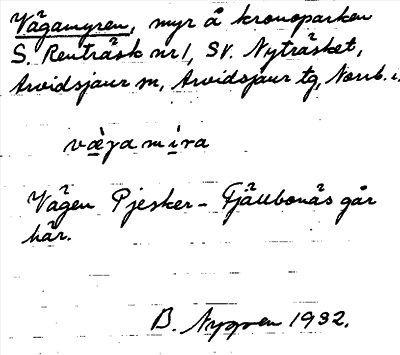 Vägamyren, myr å kronoparken
S. Renträsk nr 1, SV. Nyträsket,
Arvidsjaur sn, Arvidsjaur tg, Norrb. l.
væ̀gamira
Vägen Pjesker - Fjällbonäs går
här.
B. Nygren 1932.